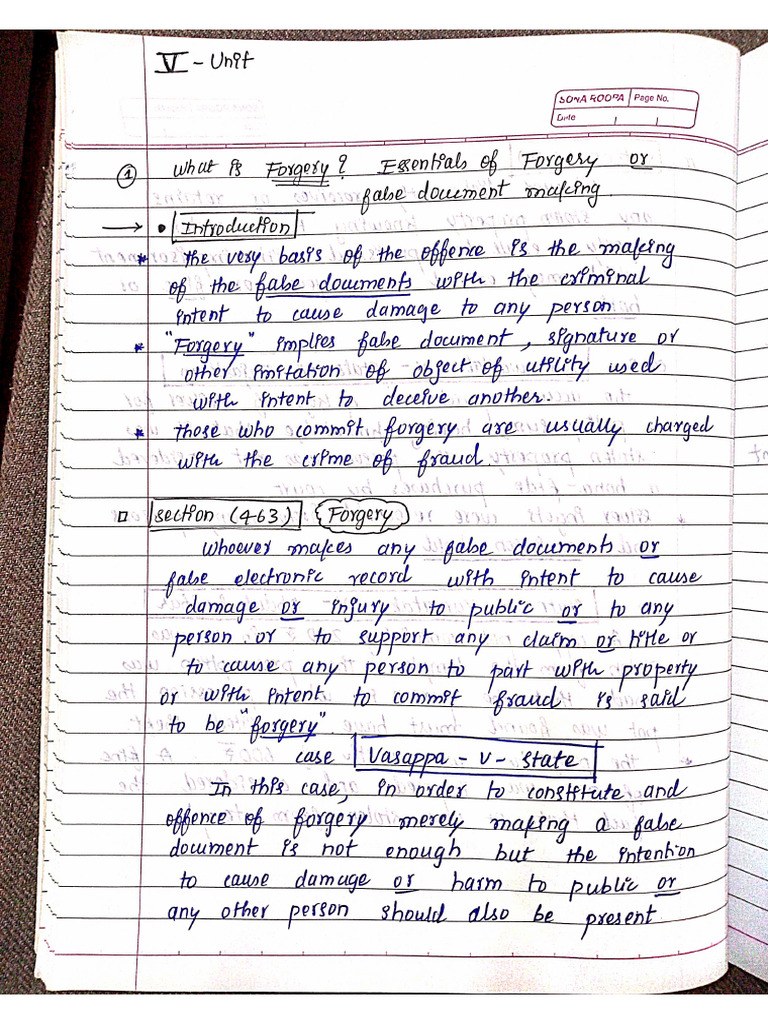 V - Unit
SONA ROOPA Page No.
Date
① What is Forgery? Essentials of Forgery or
false document making.
→ • Introduction
* the very basis of the offence is the making
of the false documents with the criminal
intent to cause damage to any person
* "Forgery" implies false document, signature or
other imitation of object of utility used
with intent to deceive another.
* those who commit forgery are usually charged
with the crime of fraud.
□ section (463) Forgery
Whoever makes any false documents or
false electronic record with intent to cause
damage or injury to public or to any
person. or to support any claim or title or
to cause any person to part with property
or with intent to commit fraud is said
to be "forgery".
case Vasappa - v - state
In this case, in order to constitute and
offence of forgery merely making a false
document is not enough but the intention
to cause damage or harm to public or
any other person should also be present